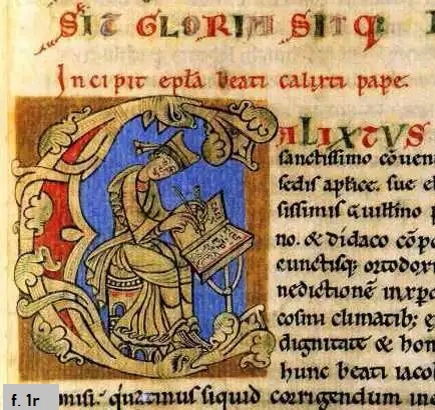 SIT GLORIA SIT Q;
Incipit epl̄a beati calixti pape.
CALIXTVS
sanctissimo cōuen
sedis aplice. sue
sissimis Guillmo
no. & didaco cōp
cunctisq; ortodox
nedictionē in xp̄o
cosmi climatib;
dignitate & hon
hunc beati iaco
misi: quatinus siquid corrigendum in
f. 1r